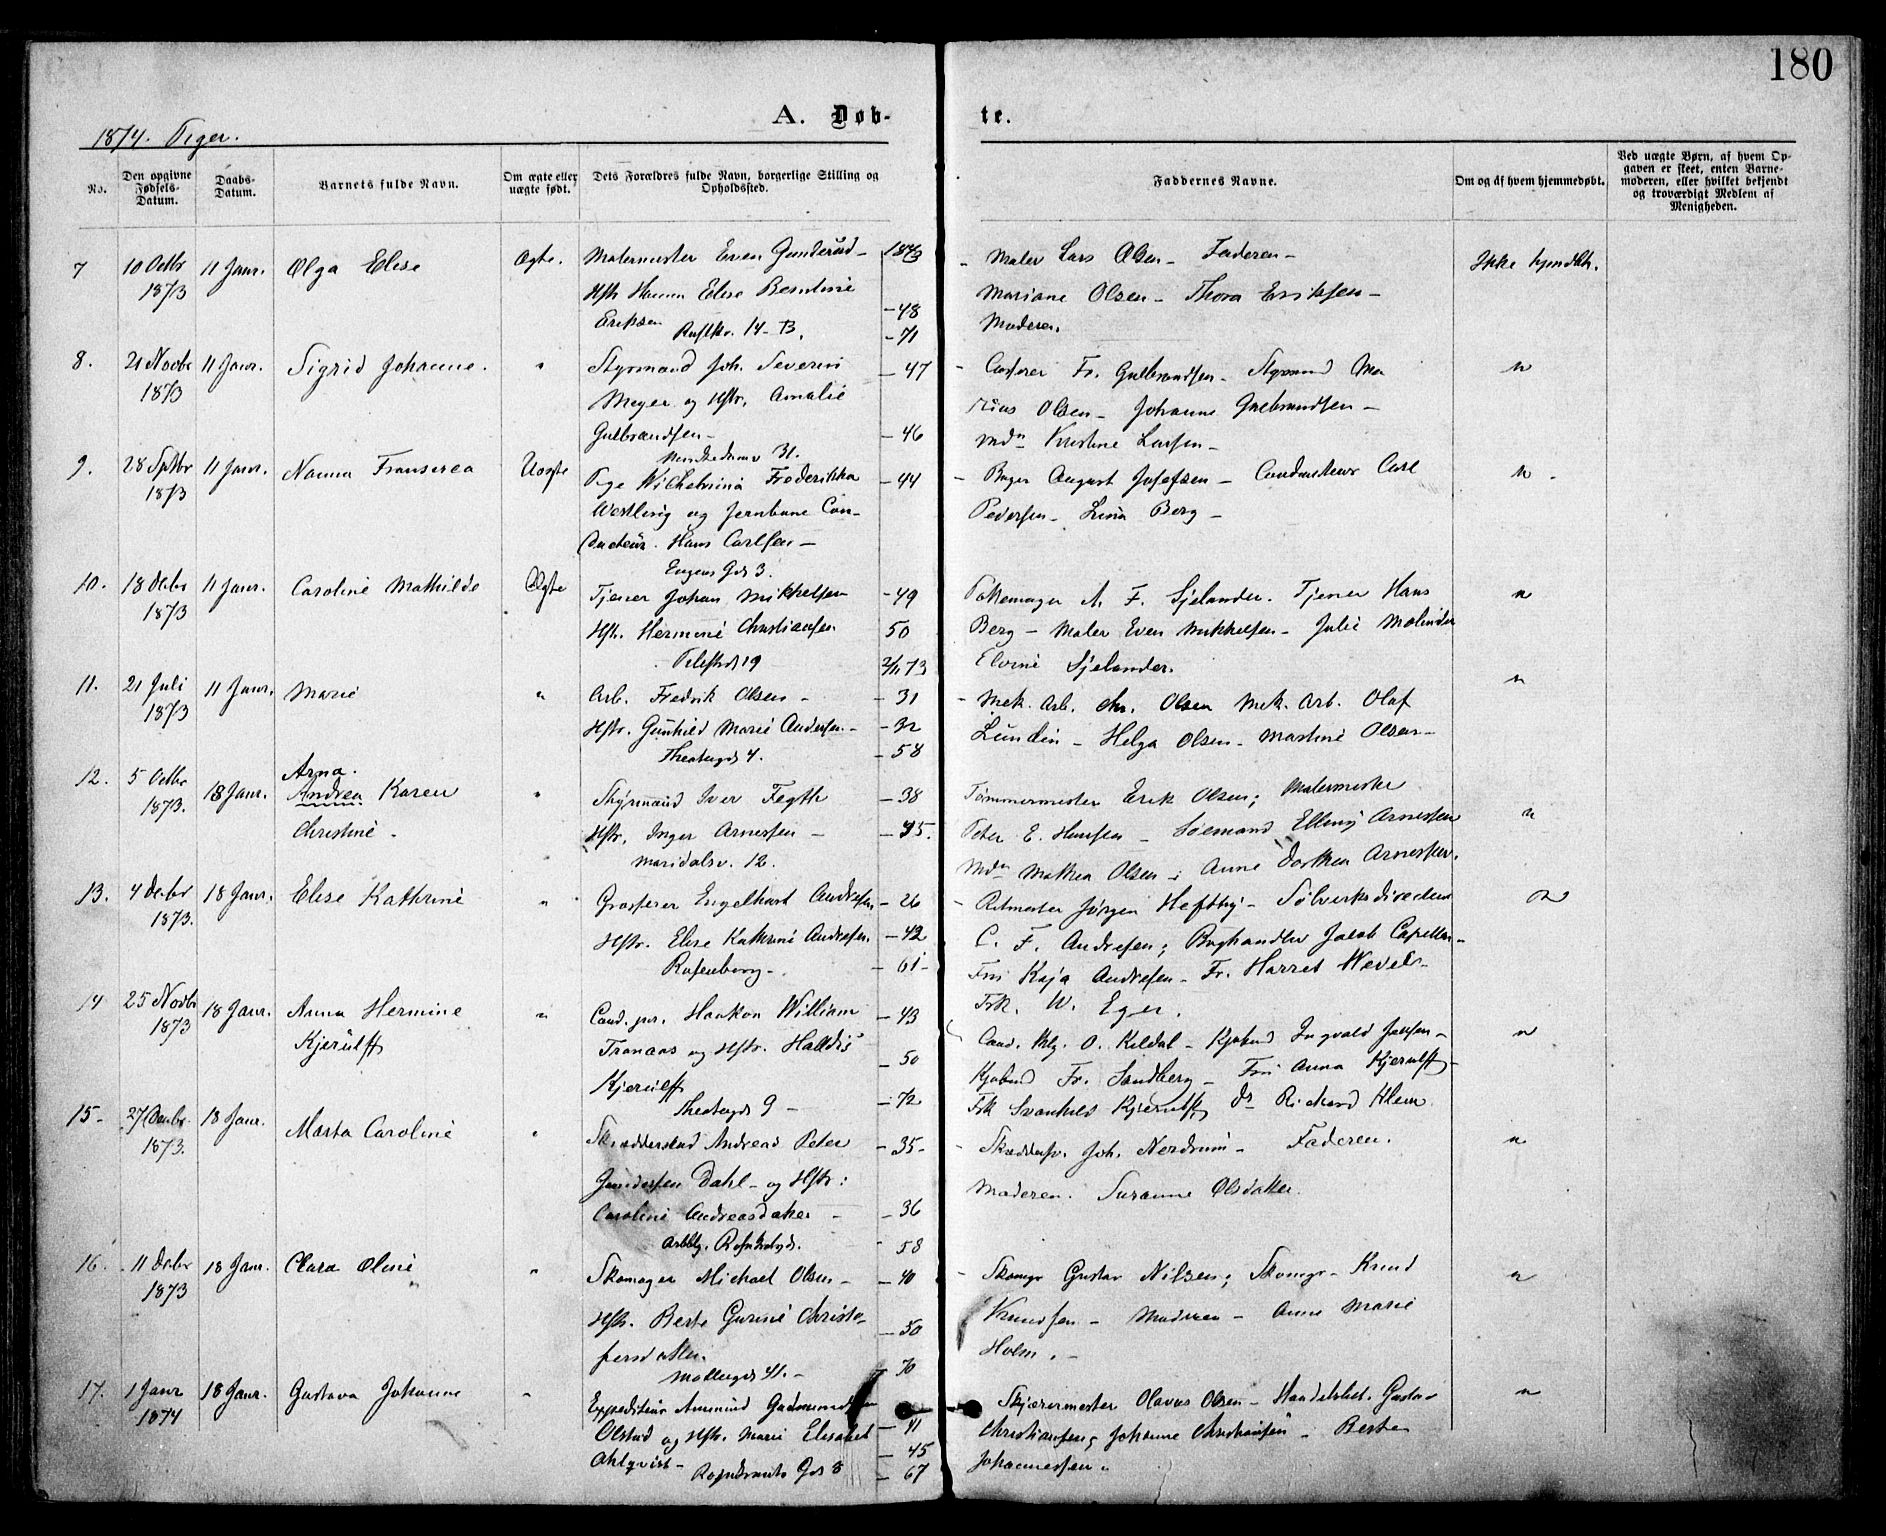 180
A. Døb-
te.
1874. Piger.
No.
Den opgivne Fødsels-Datum.
Daabs-Datum.
Barnets fulde Navn.
Om ægte eller uægte født.
Dets Forældres fulde Navn, borgerlige Stilling og Opholdssted.
Faddernes Navne.
Om og af hvem hjemmedøbt.
Ved uægte Børn, af hvem Opgaven er skeet, enten Barnemoderen, eller hvilket bekjendt og troværdigt Medlem af Menigheden.
7 10 Octbr 11 Janr. Olga Elise Ægte. Malermester Even Gunderud - 1843 - Maler Lars Olsen - Faderen - Ikke hjmdøbt.
1873 Hstr Hanna Elise Berntine - 48 Mariane Olsen - Thora Eriksen -
Eriksen 14 - B. - 71 Moderen.
8. 21 Novbr 11 Janr. Sigrid Johanne. " Styrmand Joh. Severin - 47 - Fr. Gulbrandsen - Styrmand Ma
1873 Meyer og Hstr. Amalie rius Olsen - Johanne Gulbrandsen -
Gulbrandsen - - 46 Mdm Kristine Larsen -
31.
9. 28 Septbr 11 Janr. Nanna Uægte Pige Wilhelmine Frederikka - 44 - Bager August Josefsen - Conducteur Carl "
1873 Westling og Jernbane Con- Pedersen - Lina Berg -
ducteur. Hans Carlsen -
Eugens Gd 3.
10. 18 Decbr 11 Janr. Caroline Mathilde Ægte Tjener Johan Mikkelsen - 49 A. F. Sjelander. Tjener Hans "
1873 Hstr. Hermine Christiansen 50 Berg - Maler Even Mikkelsen - Julie Molinder
Pilestrd 19 2/11 73 Elvine Sjelander.
11. 21 Juli 11 Janr. Marie " Arb. Fredrik Olsen - - 31 - Mek. Arb. Chr. Olsen Mek. Arb. Olaf "
1873 Hstr. Gunhild Marie Andersen - - 32 Lundin - Helga Olsen - Martine Olsen -
Theatergd 4. - 58
12. 5 Octbr 18 Janr. Arna.
Andrea Karen " Styrmand Iver Fegth - 38 Tømmermester Erik Olsen; Malermester
1873. Christine - Hstr. Inger Arnesen - - 45. Peter E. Hansen - Sømand Elling Arnesen "
Maridalsv. 12. Mdm Mathea Olsen; Anne Dorthea Arnesen.
13. 4 Decbr 18 Janr. Elise Kathrine " Grosserer Engelhart Andresen - 26 - Ritmester Jørgen Heftye - Sølvverksdirecteur "
1873. Hstr. Elise Kathrine Andresen - 42 C. F. Andresen; Boghandler Jacob Cappelen -
Rosenborg - - 61 - Fru Kaja Andresen - Fr. Harret Wevel -
Frk. W. Eger.
14 25 Novbr 18 Janr. Anna Hermine " Cand. jur. Haakon William - 43 Cand. O. Keldal - Ingvald Jensen - "
1873 Kjerulff Tranaas og Hstr. Halldis - 50 Fr. Sandberg - Fru Anna Kjerulff -
Kjerulff Frk Svanhild Kjerulff Dr Richard Klem
Theatergd 9 - - 72
15 - 27 18 Janr. Marta Caroline " Skræddersvend Andreas Peter - 35 - - Skrædders. Joh. Nordrum - Faderen. "
1873. Gundersen Dahl - og Hstr: Moderen. Susanne Olsdatter.
Caroline Andreasdatter - - 36
- 58
16. 11 Decbr 18 Janr. Clara Oline " Skomager Michael Olsen - - 40 - Skomgr Gustav Nilsen; Skomgr - Knud "
1873 Hstr. Berte Gurine Christo- - 50 Knudsen - Moderen - Anne Marie
fersdatter. Holm. -
Møllergd 41. - - 70
17. 1 Janr 18 Janr. Gustava Johanne " Expediteur Amund Gudmundsen - Skjærermester Olavus Olsen - Handelsbet. Gustav "
1874 Olstad og Hstr. Marie Elisabet - 41 Christiansen; Johanne Christiansen - Berte
Ahlqvist - - 45 Johannessen.
Gd 8 - 67